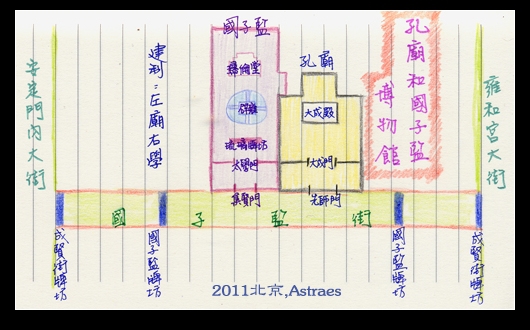 國子監
孔廟
孔廟和國子監
博物館
安定門內大街
建制:左廟右學
雍和宮大街
彝倫堂
辟雍
大成殿
琉璃牌坊
太學門
大成門
集賢門
先師門
國子監街
成賢街牌坊
國子監牌坊
國子監牌坊
成賢街牌坊
2011北京,Astraes